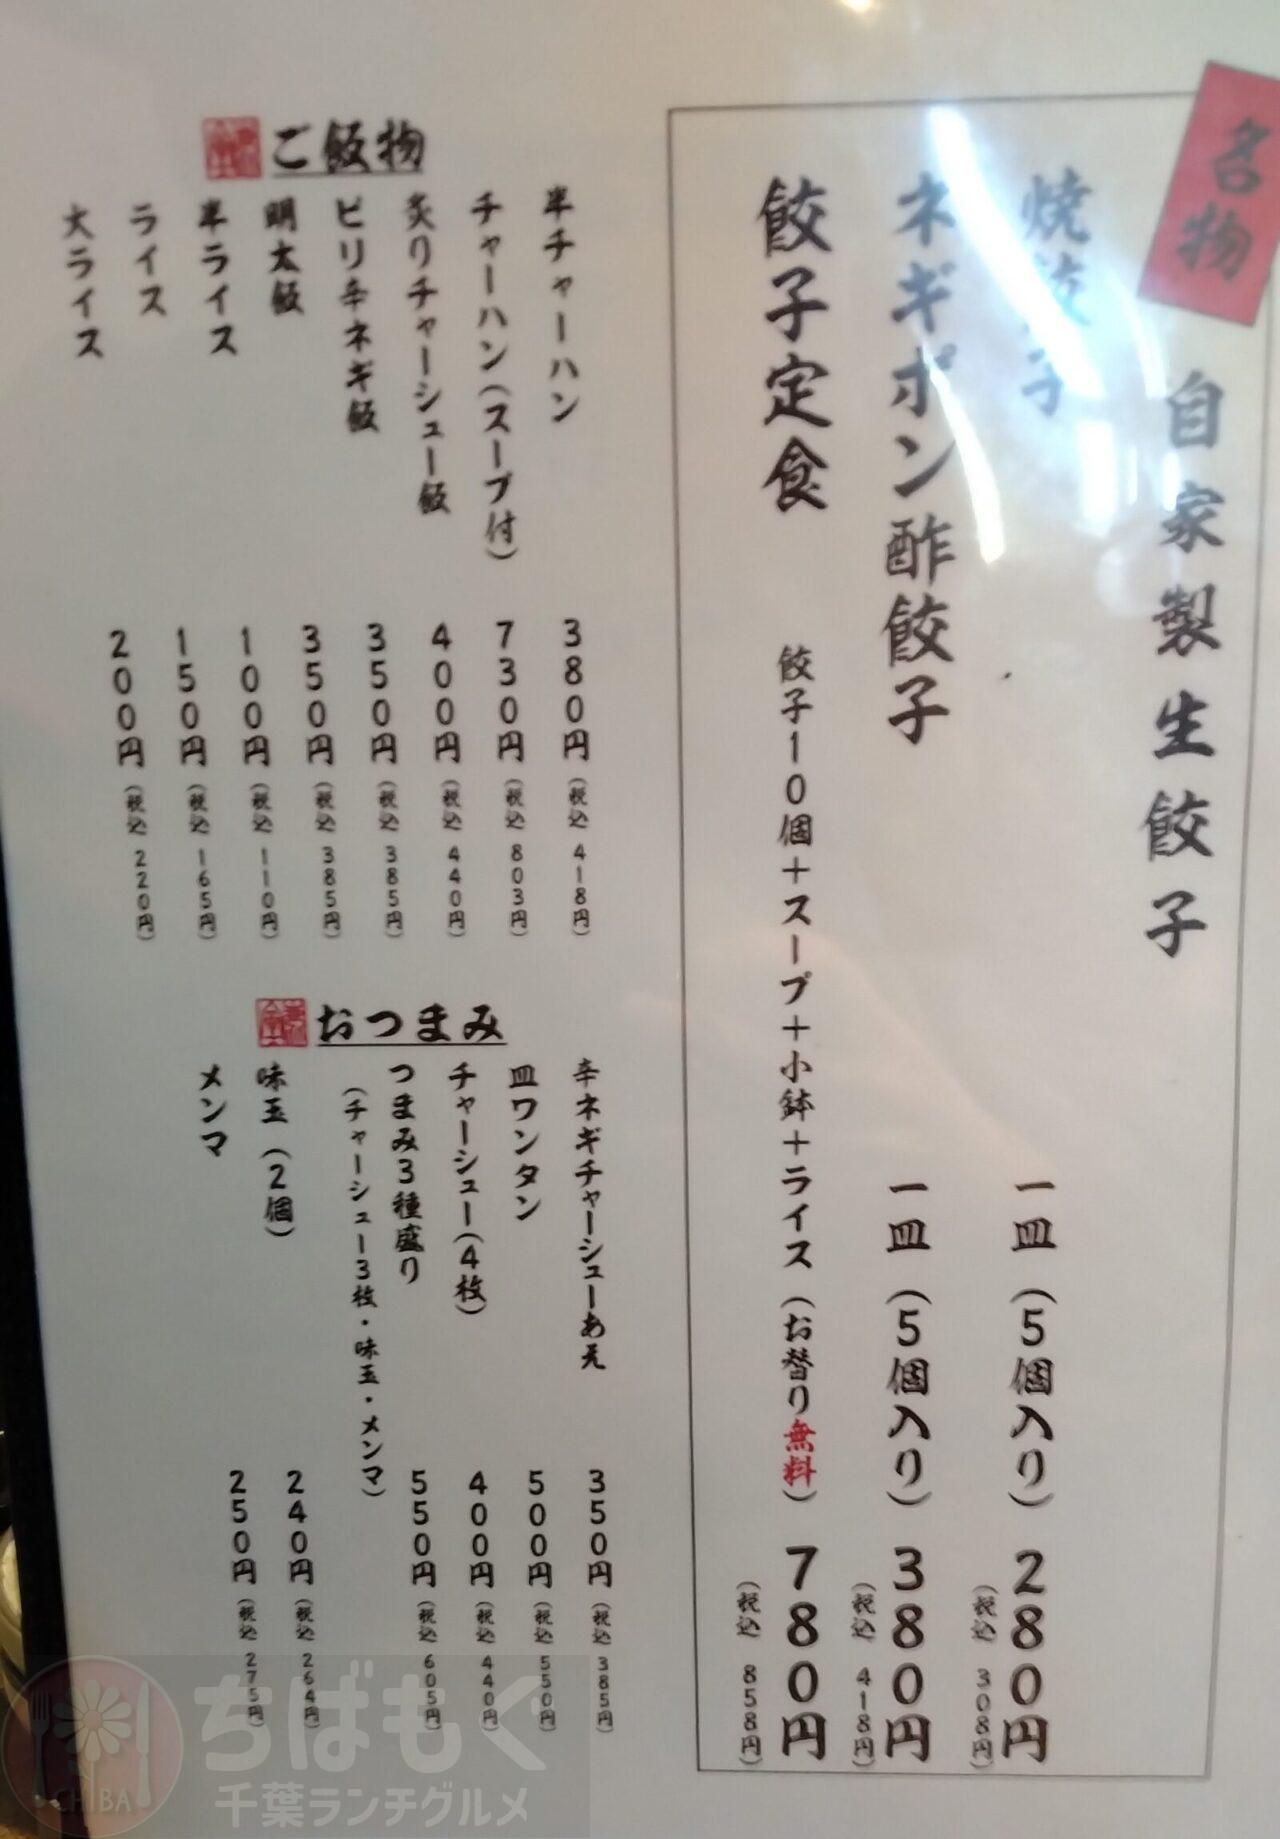 名物
自家製生餃子
焼餃子 一皿（5個入り） 280円
（税込 308円）
ネギポン酢餃子 一皿（5個入り） 380円
（税込 418円）
餃子定食 餃子10個＋スープ＋小鉢＋ライス（お替り無料） 780円
（税込 858円）
ご飯物
半チャーハン 380円（税込 418円）
チャーハン（スープ付） 730円（税込 803円）
炙りチャーシュー飯 400円（税込 440円）
ピリ辛ネギ飯 350円（税込 385円）
明太飯 350円（税込 385円）
半ライス 100円（税込 110円）
ライス 150円（税込 165円）
大ライス 200円（税込 220円）
おつまみ
辛ネギチャーシューあえ 350円（税込 385円）
皿ワンタン 500円（税込 550円）
チャーシュー（4枚） 400円（税込 440円）
つまみ3種盛り 550円（税込 605円）
（チャーシュー3枚・味玉・メンマ）
味玉（2個） 240円（税込 264円）
メンマ 250円（税込 275円）
ちばもぐ
千葉ランチグルメ
CHIBA